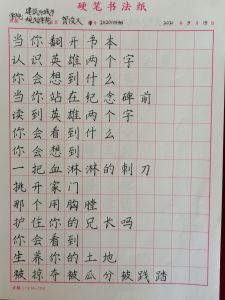 硬笔书法纸
当你翻开书本
认识英雄两个字
你会想到什么
当你站在纪念碑前
读到英雄两个字
你会看到什么
你会想到
一把血淋淋的刺刀
挑开家门
那个用胸膛
护住你的兄长吗
你会看到
生养你的土地
被掠夺被瓜分被践踏